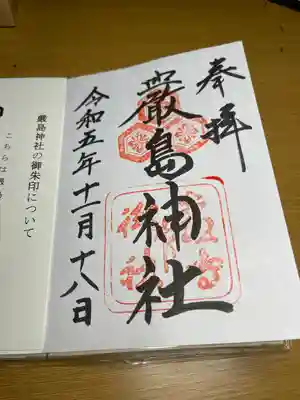 奉拝
嚴島神社
令和五年十一月十八日
嚴島神社の御朱印について
こちらは